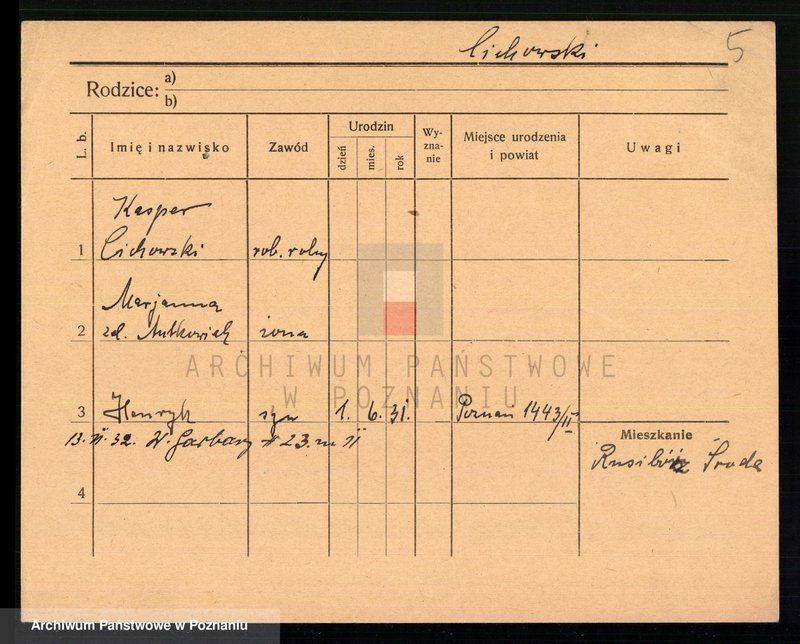 Cichowski 5
Rodzice: a)
b)
L. b. Imię i nazwisko Zawód Urodzin dzień mies. rok Wy-zna-nie Miejsce urodzenia i powiat Uwagi
Kasper
1 Cichowski rob. rolny
Marjanna
2 zd. Antkowiak żona
3 Henryk syn 1. 6. 31. Poznań 1443/II
13. 32. W. Garbary 23. m
Mieszkanie
Środa
4
ARCHIWUM PAŃSTWOWE
W POZNANIU
Archiwum Państwowe w Poznaniu